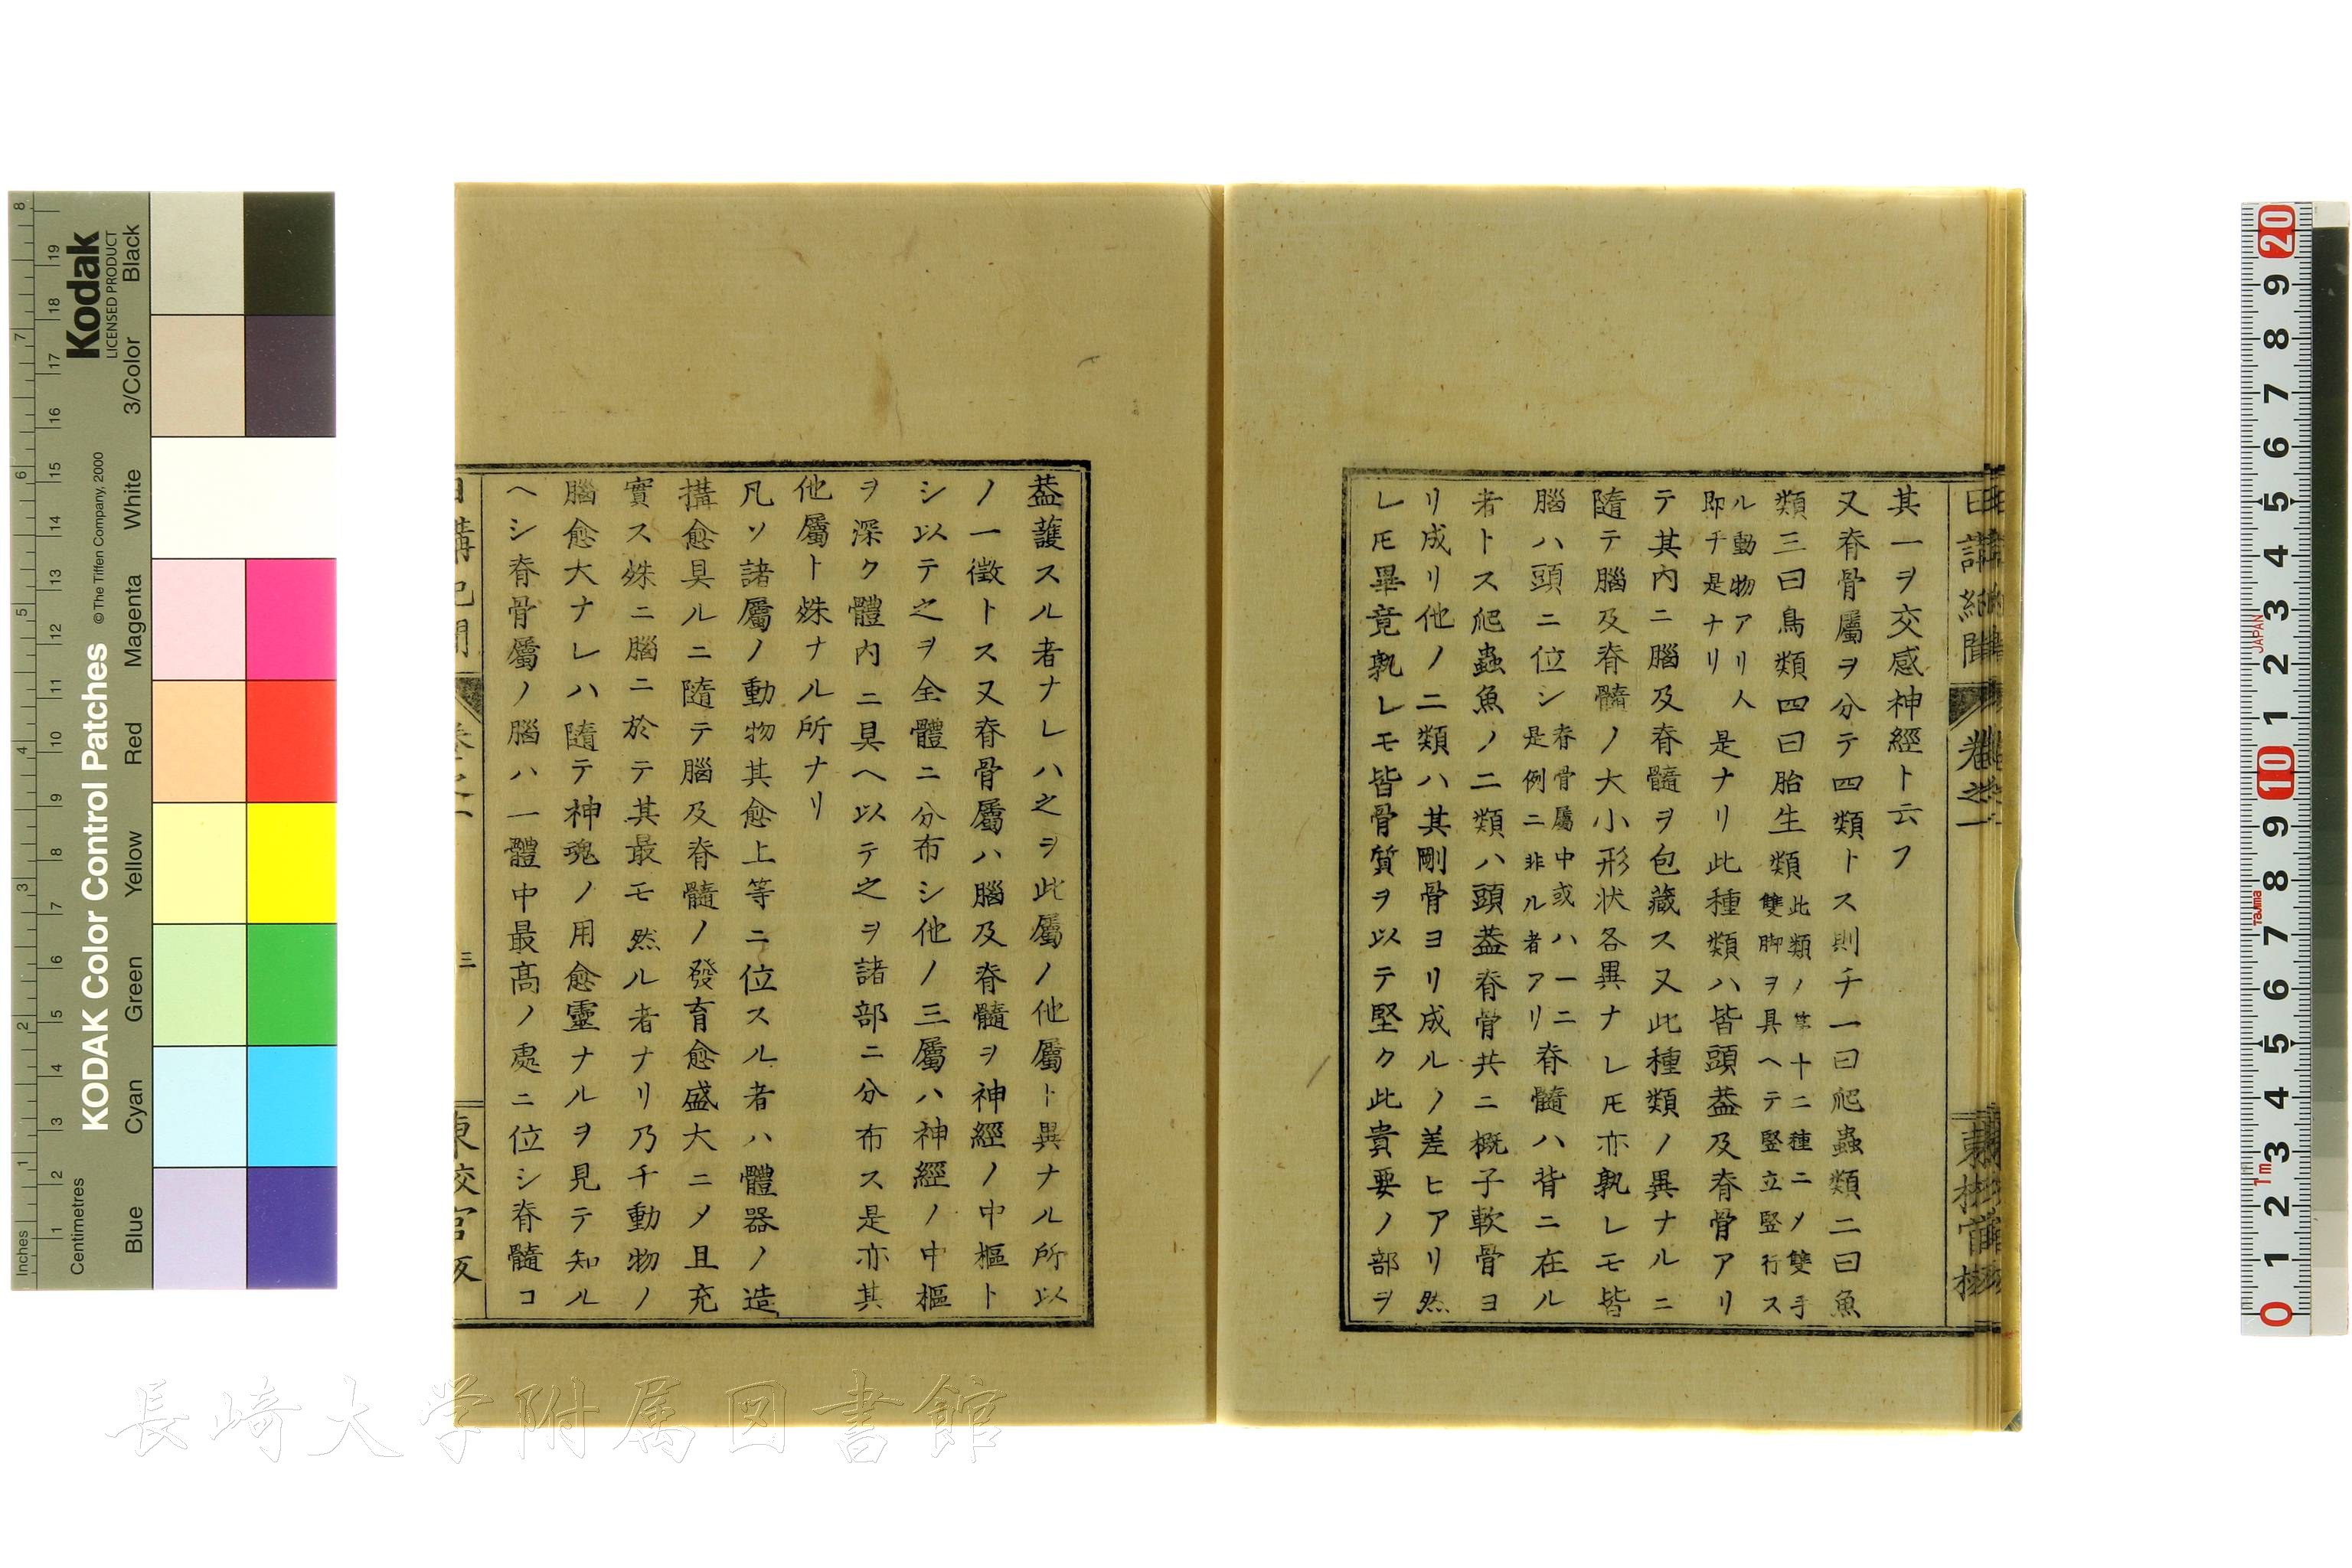 日講紀聞 卷之一 東校官板
其一ヲ交感神經ト云フ
又脊骨屬ヲ分テ四類トス則チ一曰爬蟲類二曰魚
類三曰鳥類四曰胎生類此類ノ第十二種ニ〆雙手
雙脚ヲ具ヘテ竪立竪行ス
ル動物アリ人
即チ是ナリ是ナリ此種類ハ皆頭蓋及脊骨アリ
テ其内ニ腦及脊髓ヲ包藏ス又此種類ノ異ナルニ
隨テ腦及脊髓ノ大小形状各異ナレ𪜈亦孰レモ皆
腦ハ頭ニ位シ脊骨屬中或ハ一二
是例ニ非ル者アリ脊髓ハ背ニ在ル
者トス爬蟲魚ノ二類ハ頭蓋脊骨共ニ概子軟骨ヨ
リ成リ他ノ二類ハ其剛骨ヨリ成ルノ差ヒアリ然
レ𪜈畢竟孰レモ皆骨質ヲ以テ堅ク此貴要ノ部ヲ
葢護スル者ナレハ之ヲ此屬ノ他屬ト異ナル所以
ノ一徴トス又脊骨屬ハ腦及脊髓ヲ神經ノ中樞ト
シ以テ之ヲ全體ニ分布シ他ノ三屬ハ神經ノ中樞
ヲ深ク體内ニ具ヘ以テ之ヲ諸部ニ分布ス是亦其
他屬ト殊ナル所ナリ
凡ソ諸屬ノ動物其愈上等ニ位スル者ハ體器ノ造
搆愈具ルニ隨テ腦及脊髓ノ發育愈盛大ニ〆且充
實ス殊ニ腦ニ於テ其最モ然ル者ナリ乃チ動物ノ
腦愈大ナレハ隨テ神魂ノ用愈靈ナルヲ見テ知ル
ヘシ脊骨屬ノ腦ハ一體中最高ノ處ニ位シ脊髓コ
三
長崎大学附属図書館
KODAK Color Control Patches
© The Tiffen Company, 2000
Kodak
LICENSED PRODUCT
Blue Cyan Green Yellow Red Magenta White 3/Color Black
Inches 1 2 3 4 5 6 7 8
Centimetres 1 2 3 4 5 6 7 8 9 10 11 12 13 14 15 16 17 18 19
0 1 2 3 4 5 6 7 8 9 10 1 2 3 4 5 6 7 8 9 20
1m
Tajima
JAPAN